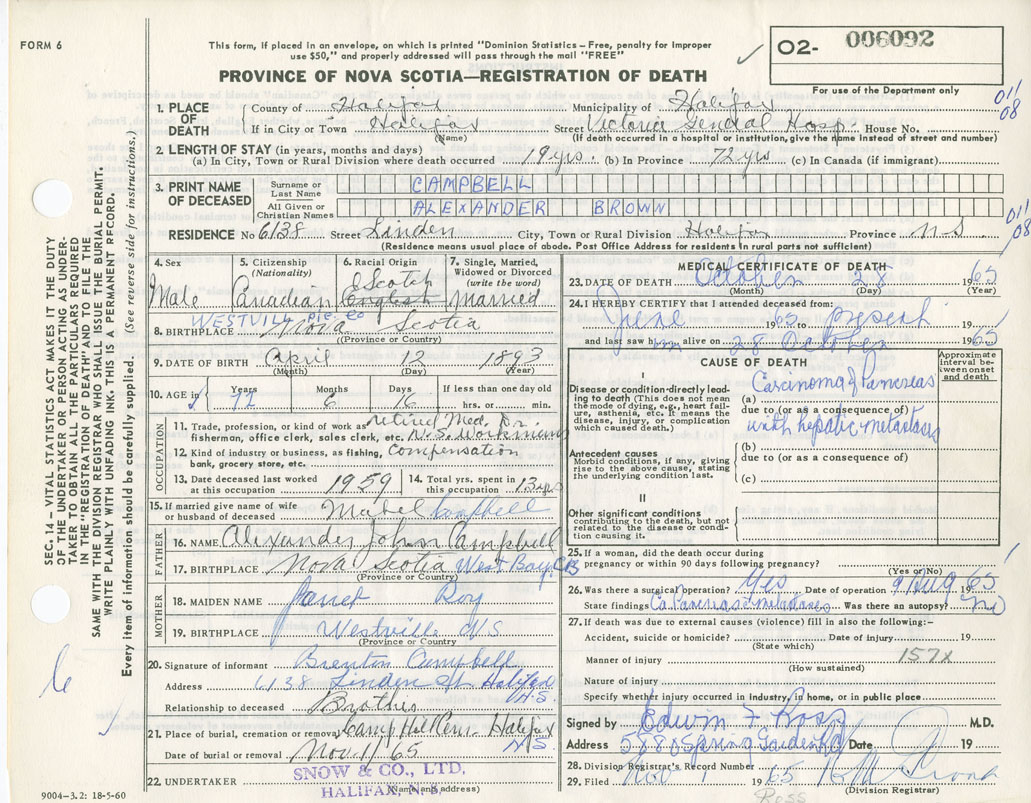 FORM 6
This form, if placed in an envelope, on which is printed "Dominion Statistics – Free, penalty for improper
use $50," and properly addressed will pass through the mail "FREE"
PROVINCE OF NOVA SCOTIA—REGISTRATION OF DEATH
O2- 006092
For use of the Department only
011
08
1. PLACE OF DEATH
County of Halifax Municipality of Halifax
If in City or Town Halifax Street Victoria General Hosp. House No.
(Name) (If death occurred in a hospital or institution, give the name instead of street and number)
2. LENGTH OF STAY (in years, months and days)
(a) In City, Town or Rural Division where death occurred 19 yrs. (b) In Province 72 yrs (c) In Canada (if immigrant)
3. PRINT NAME OF DECEASED
Surname or Last Name CAMPBELL
All Given or Christian Names ALEXANDER BROWN
011
08
RESIDENCE No 6138 Street Linden City, Town or Rural Division Halifax Province N S
(Residence means usual place of abode. Post Office Address for residents in rural parts not sufficient)
4. Sex
Male
5. Citizenship
(Nationality)
Canadian
6. Racial Origin
Scotch
English
7. Single, Married,
Widowed or Divorced
(write the word)
Married
WESTVILLE PIC. CO
8. BIRTHPLACE Nova Scotia
(Province or Country)
9. DATE OF BIRTH April 12 1893
(Month) (Day) (Year)
10. AGE in
Years Months Days If less than one day old
72 6 16 hrs. or min.
OCCUPATION
11. Trade, profession, or kind of work as retired Med. Dr.
fisherman, office clerk, sales clerk, etc. N.S. Workmens
12. Kind of industry or business, as fishing, Compensation
bank, grocery store, etc.
13. Date deceased last worked
at this occupation 1959
14. Total yrs. spent in
this occupation 13 yrs
15. If married give name of wife
or husband of deceased Mabel Campbell
FATHER
16. NAME Alexander John Campbell
17. BIRTHPLACE Nova Scotia West Bay, CB
(Province or Country)
MOTHER
18. MAIDEN NAME Janet Roy
19. BIRTHPLACE Westville NS
(Province or Country)
20. Signature of informant Brenton Campbell
Address 6138 Linden St Halifax
N.S.
Relationship to deceased Brother
21. Place of burial, cremation or removal Camp Hill Cem Halifax
NS
Date of burial or removal Nov 1/65
22. UNDERTAKER SNOW & CO., LTD.
HALIFAX, N. S.
(Name and address)
9004–3.2: 18-5-60
MEDICAL CERTIFICATE OF DEATH
23. DATE OF DEATH October 28 1965
(Month) (Day) (Year)
24. I HEREBY CERTIFY that I attended deceased from:
June 1965 to present 19
and last saw him alive on 28 October 1965
CAUSE OF DEATH
Approximate interval between onset and death
I
Disease or condition directly leading to death (This does not mean the mode of dying, e.g., heart failure, asthenia, etc. It means the disease, injury, or complication which caused death).
(a) Carcinoma of Pancreas
due to (or as a consequence of)
with hepatic metastases
Antecedent causes
Morbid conditions, if any, giving rise to the above cause, stating the underlying condition last.
(b)
due to (or as a consequence of)
(c)
II
Other significant conditions
contributing to the death, but not related to the disease or condition causing it.
25. If a woman, did the death occur during
pregnancy or within 90 days following pregnancy?
(Yes or No)
26. Was there a surgical operation? Yes Date of operation 9 Aug 1965
State findings Ca Pancreas metastases Was there an autopsy? No
27. If death was due to external causes (violence) fill in also the following:–
Accident, suicide or homicide? Date of injury 19
(State which)
Manner of injury 157X
(How sustained)
Nature of injury
Specify whether injury occurred in industry, in home, or in public place
Signed by Edwin F Ross M.D.
Address 5880 Spring Garden Rd Date 19
28. Division Registrar's Record Number
29. Filed Nov 1 1965
(Division Registrar)
Ross
SEC. 14 – VITAL STATISTICS ACT MAKES IT THE DUTY
OF THE UNDERTAKER OR PERSON ACTING AS UNDER-
TAKER TO OBTAIN ALL THE PARTICULARS REQUIRED
IN THE "REGISTRATION OF DEATH" AND TO FILE THE
SAME WITH THE DIVISION REGISTRAR WHO SHALL ISSUE THE BURIAL PERMIT.
WRITE PLAINLY WITH UNFADING INK. THIS IS A PERMANENT RECORD.
Every item of information should be carefully supplied. (See reverse side for instructions.)